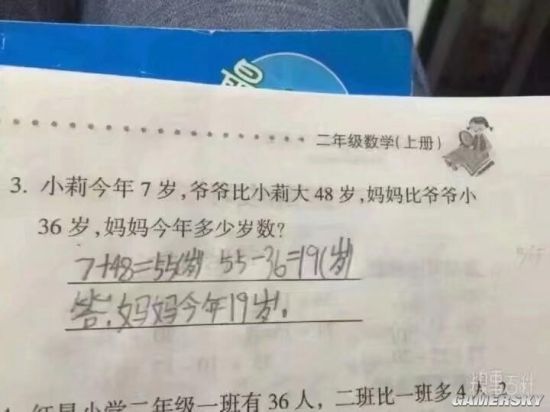 二年级数学(上册)
3. 小莉今年 7 岁,爷爷比小莉大 48 岁,妈妈比爷爷小
36 岁,妈妈今年多少岁数?
7+48=55(岁) 55-36=19(岁)
答:妈妈今年19岁。
小学二年级一班有 36 人,二班比一班多 4 人
GAMERSKY